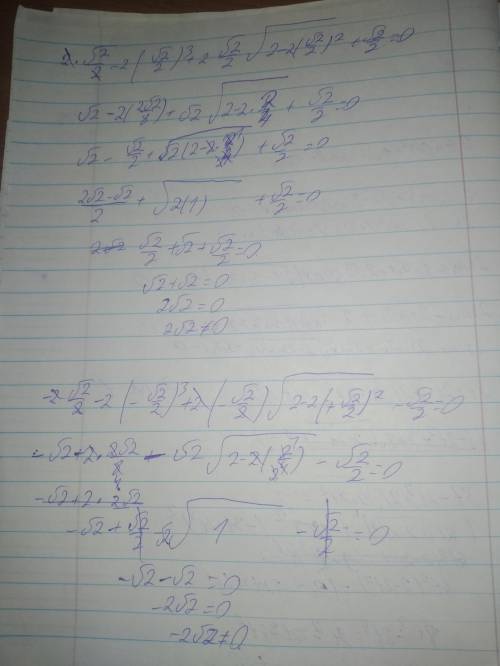 2·√2/2 - 2(√2/2)³ + 2 √2/2 √(2-2(√2/2)²) + √2/2 = 0
√2 - 2(2√2/8) + √2 √(2-2·2/4) + √2/2 = 0
√2 - √2/2 + √(2(2-2·2/4)) + √2/2 = 0
(2√2-√2)/2 + √(2(1)) + √2/2 = 0
√2/2 + √2 + √2/2 = 0
√2+√2=0
2√2=0
2√2≠0
-2 √2/2 - 2(-√2/2)³ + 2(-√2/2) √(2-2(+√2/2)²) - √2/2 = 0
-√2 + 2·2√2/8 - √2 √(2-2(2/4)) - √2/2 = 0
-√2+2·2√2
-√2 + √2/2 - √2 √1 - √2/2 = 0
-√2-√2=0
-2√2=0
-2√2≠0